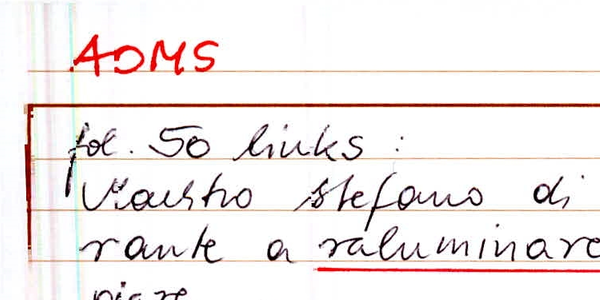 AOMS
fol. 50 links :
Maestro Stefano di
rante a raluminare